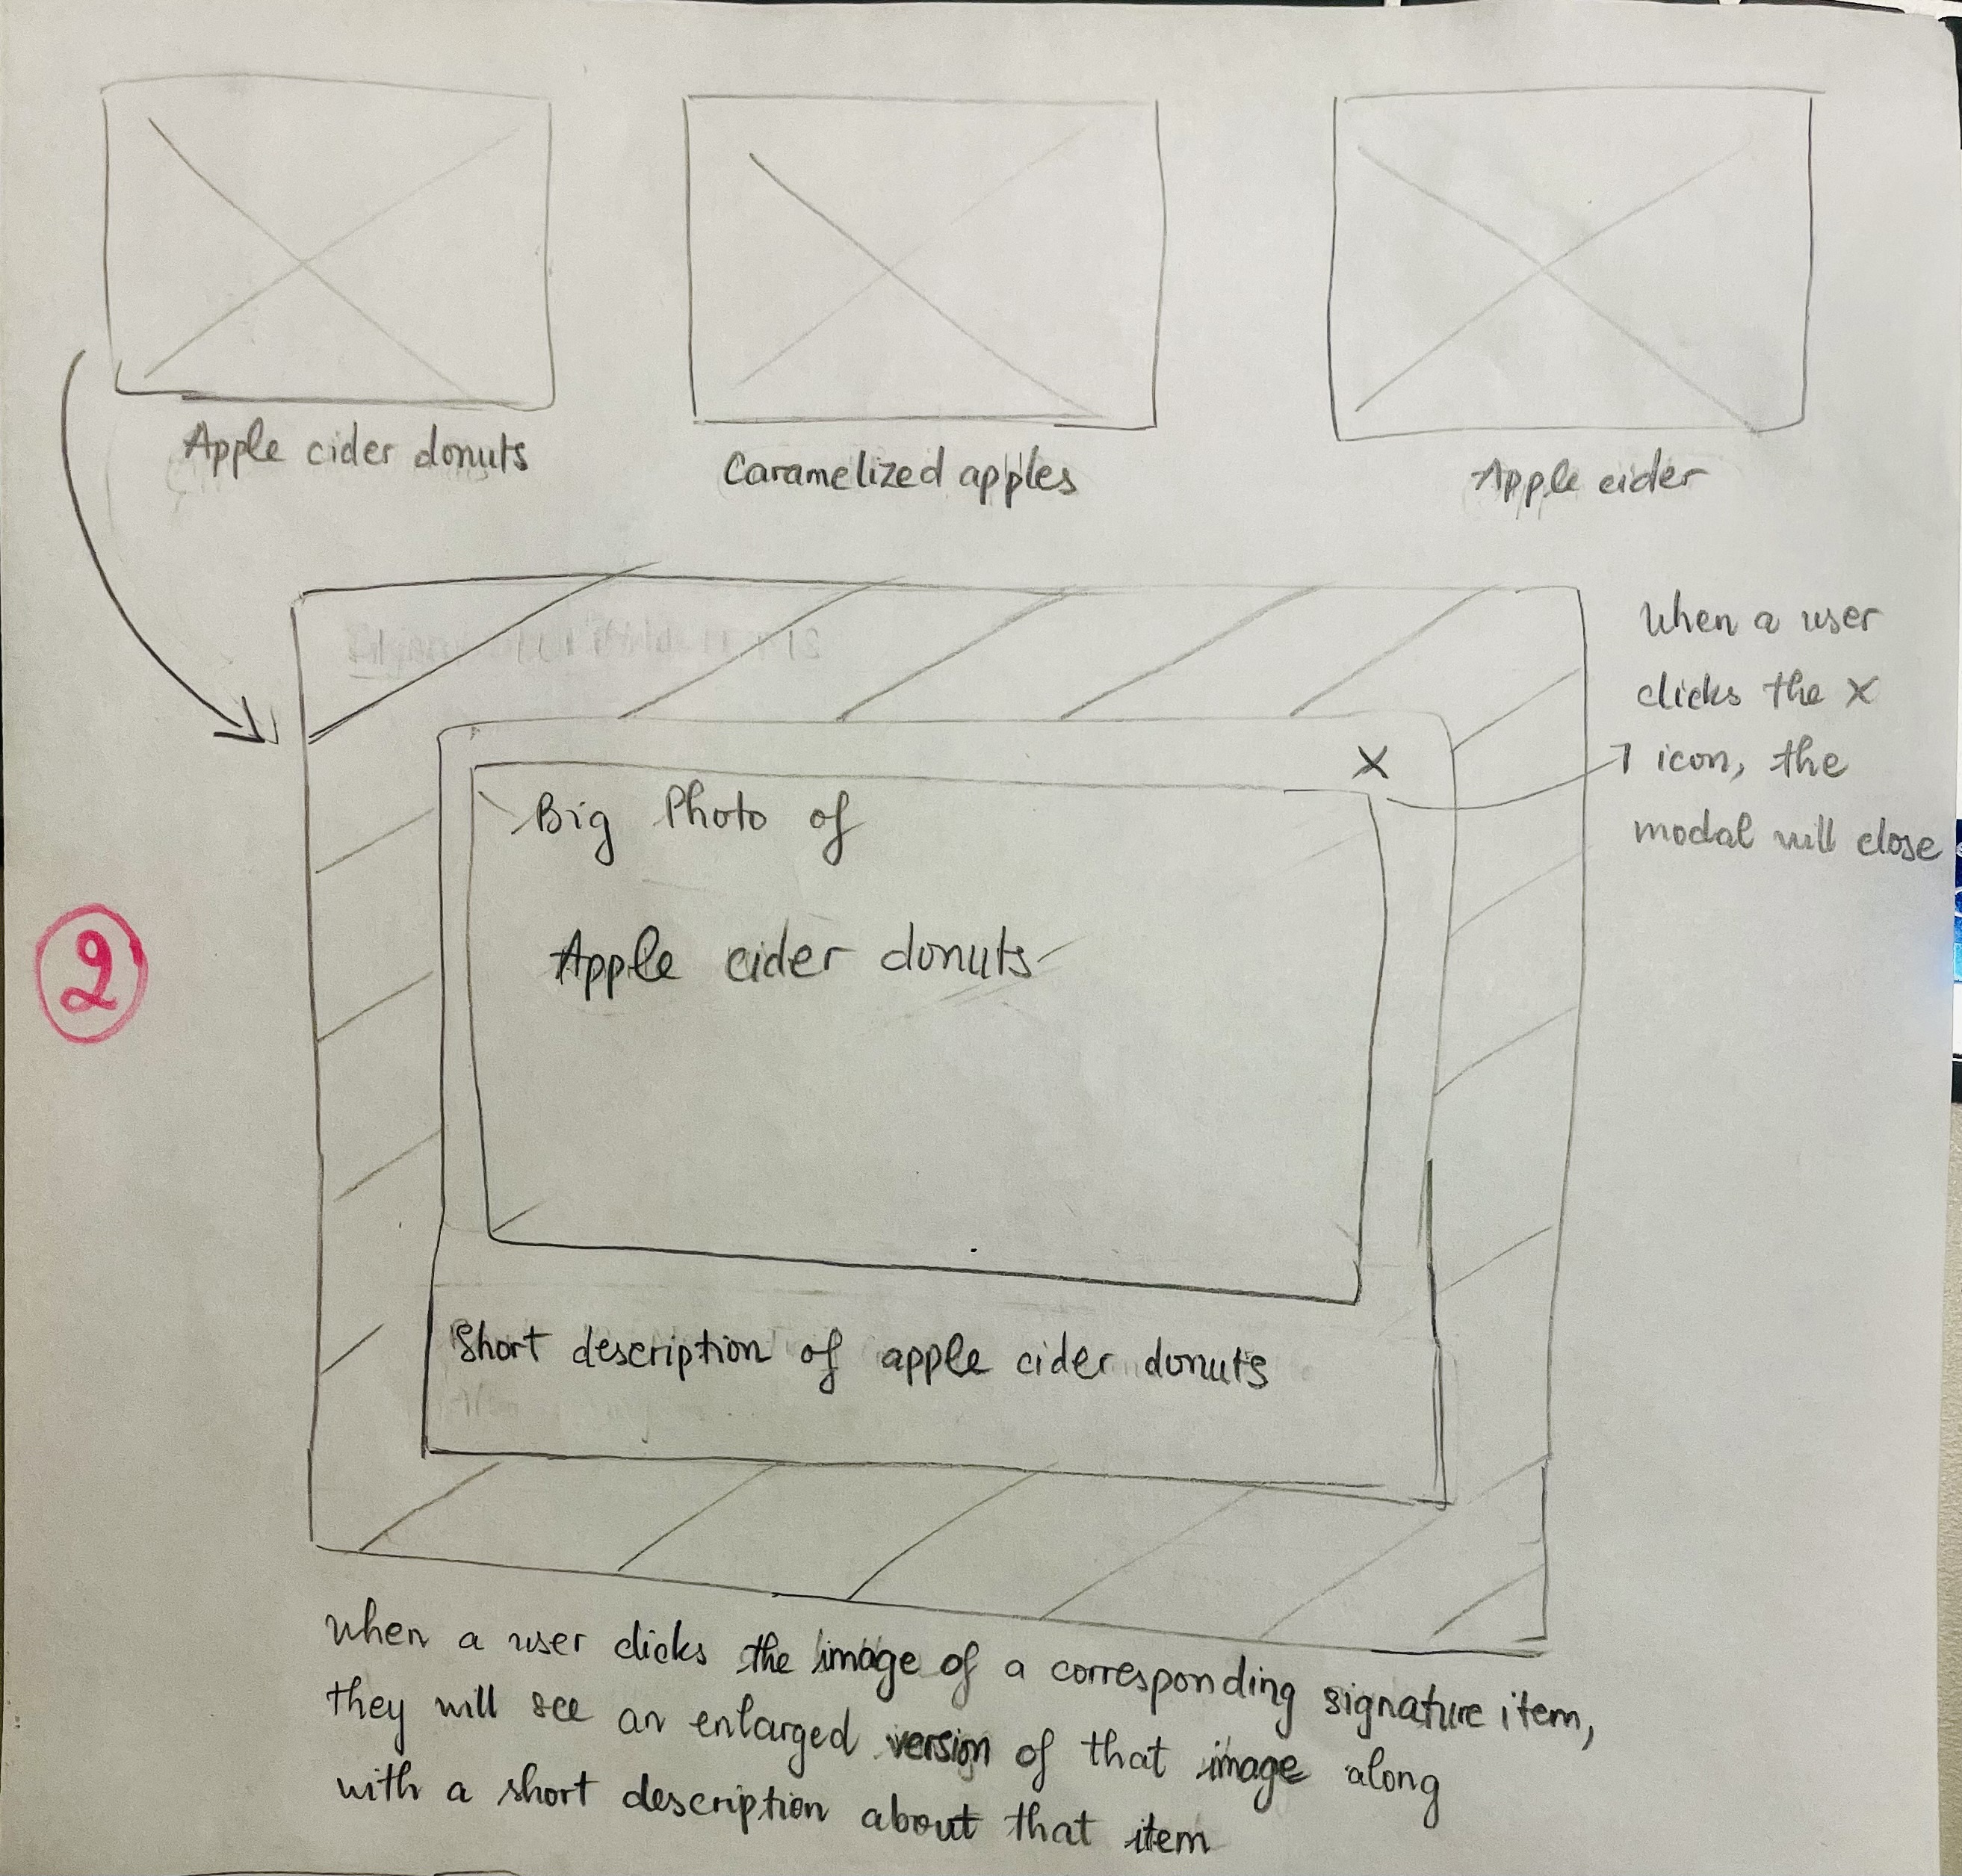 Apple cider donuts
Caramelized apples
Apple cider
When a user
clicks the X
icon, the
modal will close
X
Big Photo of
Apple cider donuts
2
Short description of apple cider donuts
When a user clicks the image of a corresponding signature item,
they will see an enlarged version of that image along
with a short description about that item